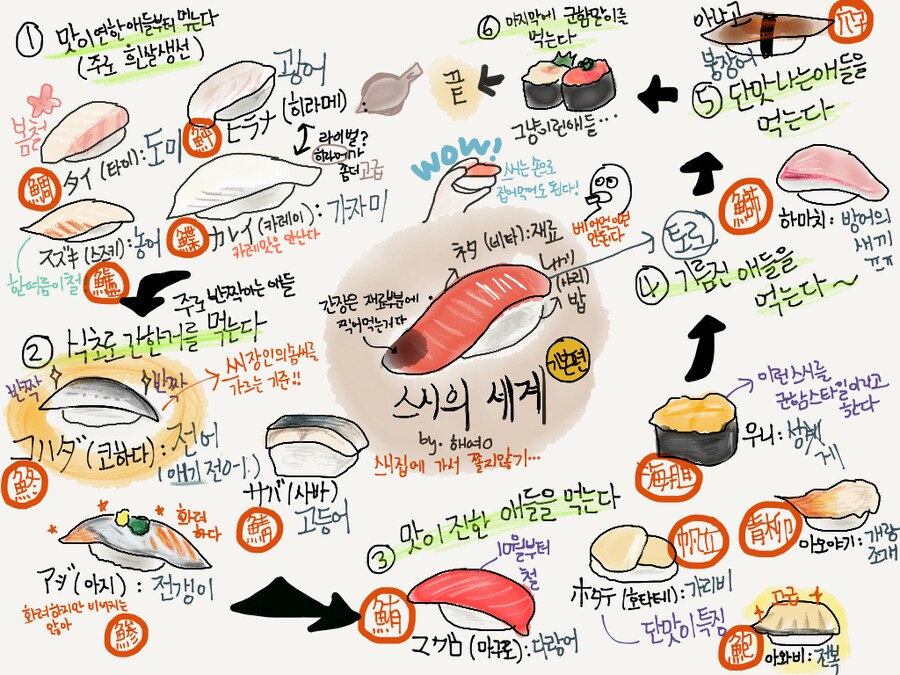 ① 맛이 연한 애들부터 먹는다
(주로 흰살생선)
봄철
タイ (타이) : 도미
鯛
광어
(히라메)
ヒラメ
鮃
라이벌?
히라메가
좀 더 고급
カレイ (카레이) : 가자미
카레맛은 안난다
鰈
スズキ (스즈키) : 농어
한여름이 철
鱸
주로 반짝이는 애들
② 식초로 간한거를 먹는다
반짝
반짝
씨장인의 솜씨를
가르는 기준!!
コハダ (코하다) : 전어
(애기 전어!)
サバ (사바)
고등어
鯖
화려
하다
アジ (아지) : 전갱이
화려하지만 비싸지는
않아
鰺
③ 맛이 진한 애들을 먹는다
10월부터
철
鮪
マグロ (마구로) : 다랑어
ホタテ (호타테) : 가리비
帆立
단맛이 특징
青柳
아오야기 : 개량
조개
고급
아와비 : 전복
鮑
이런 스시를
군함스타일이라고
한다
우니 : 성게
海胆
④ 기름진 애들을
먹는다~
토로
하마치 : 방어의
새끼
ㄲㅠ
⑤ 단맛 나는 애들을
먹는다
아나고
붕장어
穴子
⑥ 마지막에 군함말이를
먹는다
그냥 이런애들...
끝
WOW!
스시는 손으로
집어먹어도 된다!
베어먹으면
안된다
ネタ (네타) : 재료
샤리
(샤리)
밥
간장은 재료부분에
찍어먹는거다
스시의 세계
기본편
by. 해영
스시집에 가서 쫄지않기...